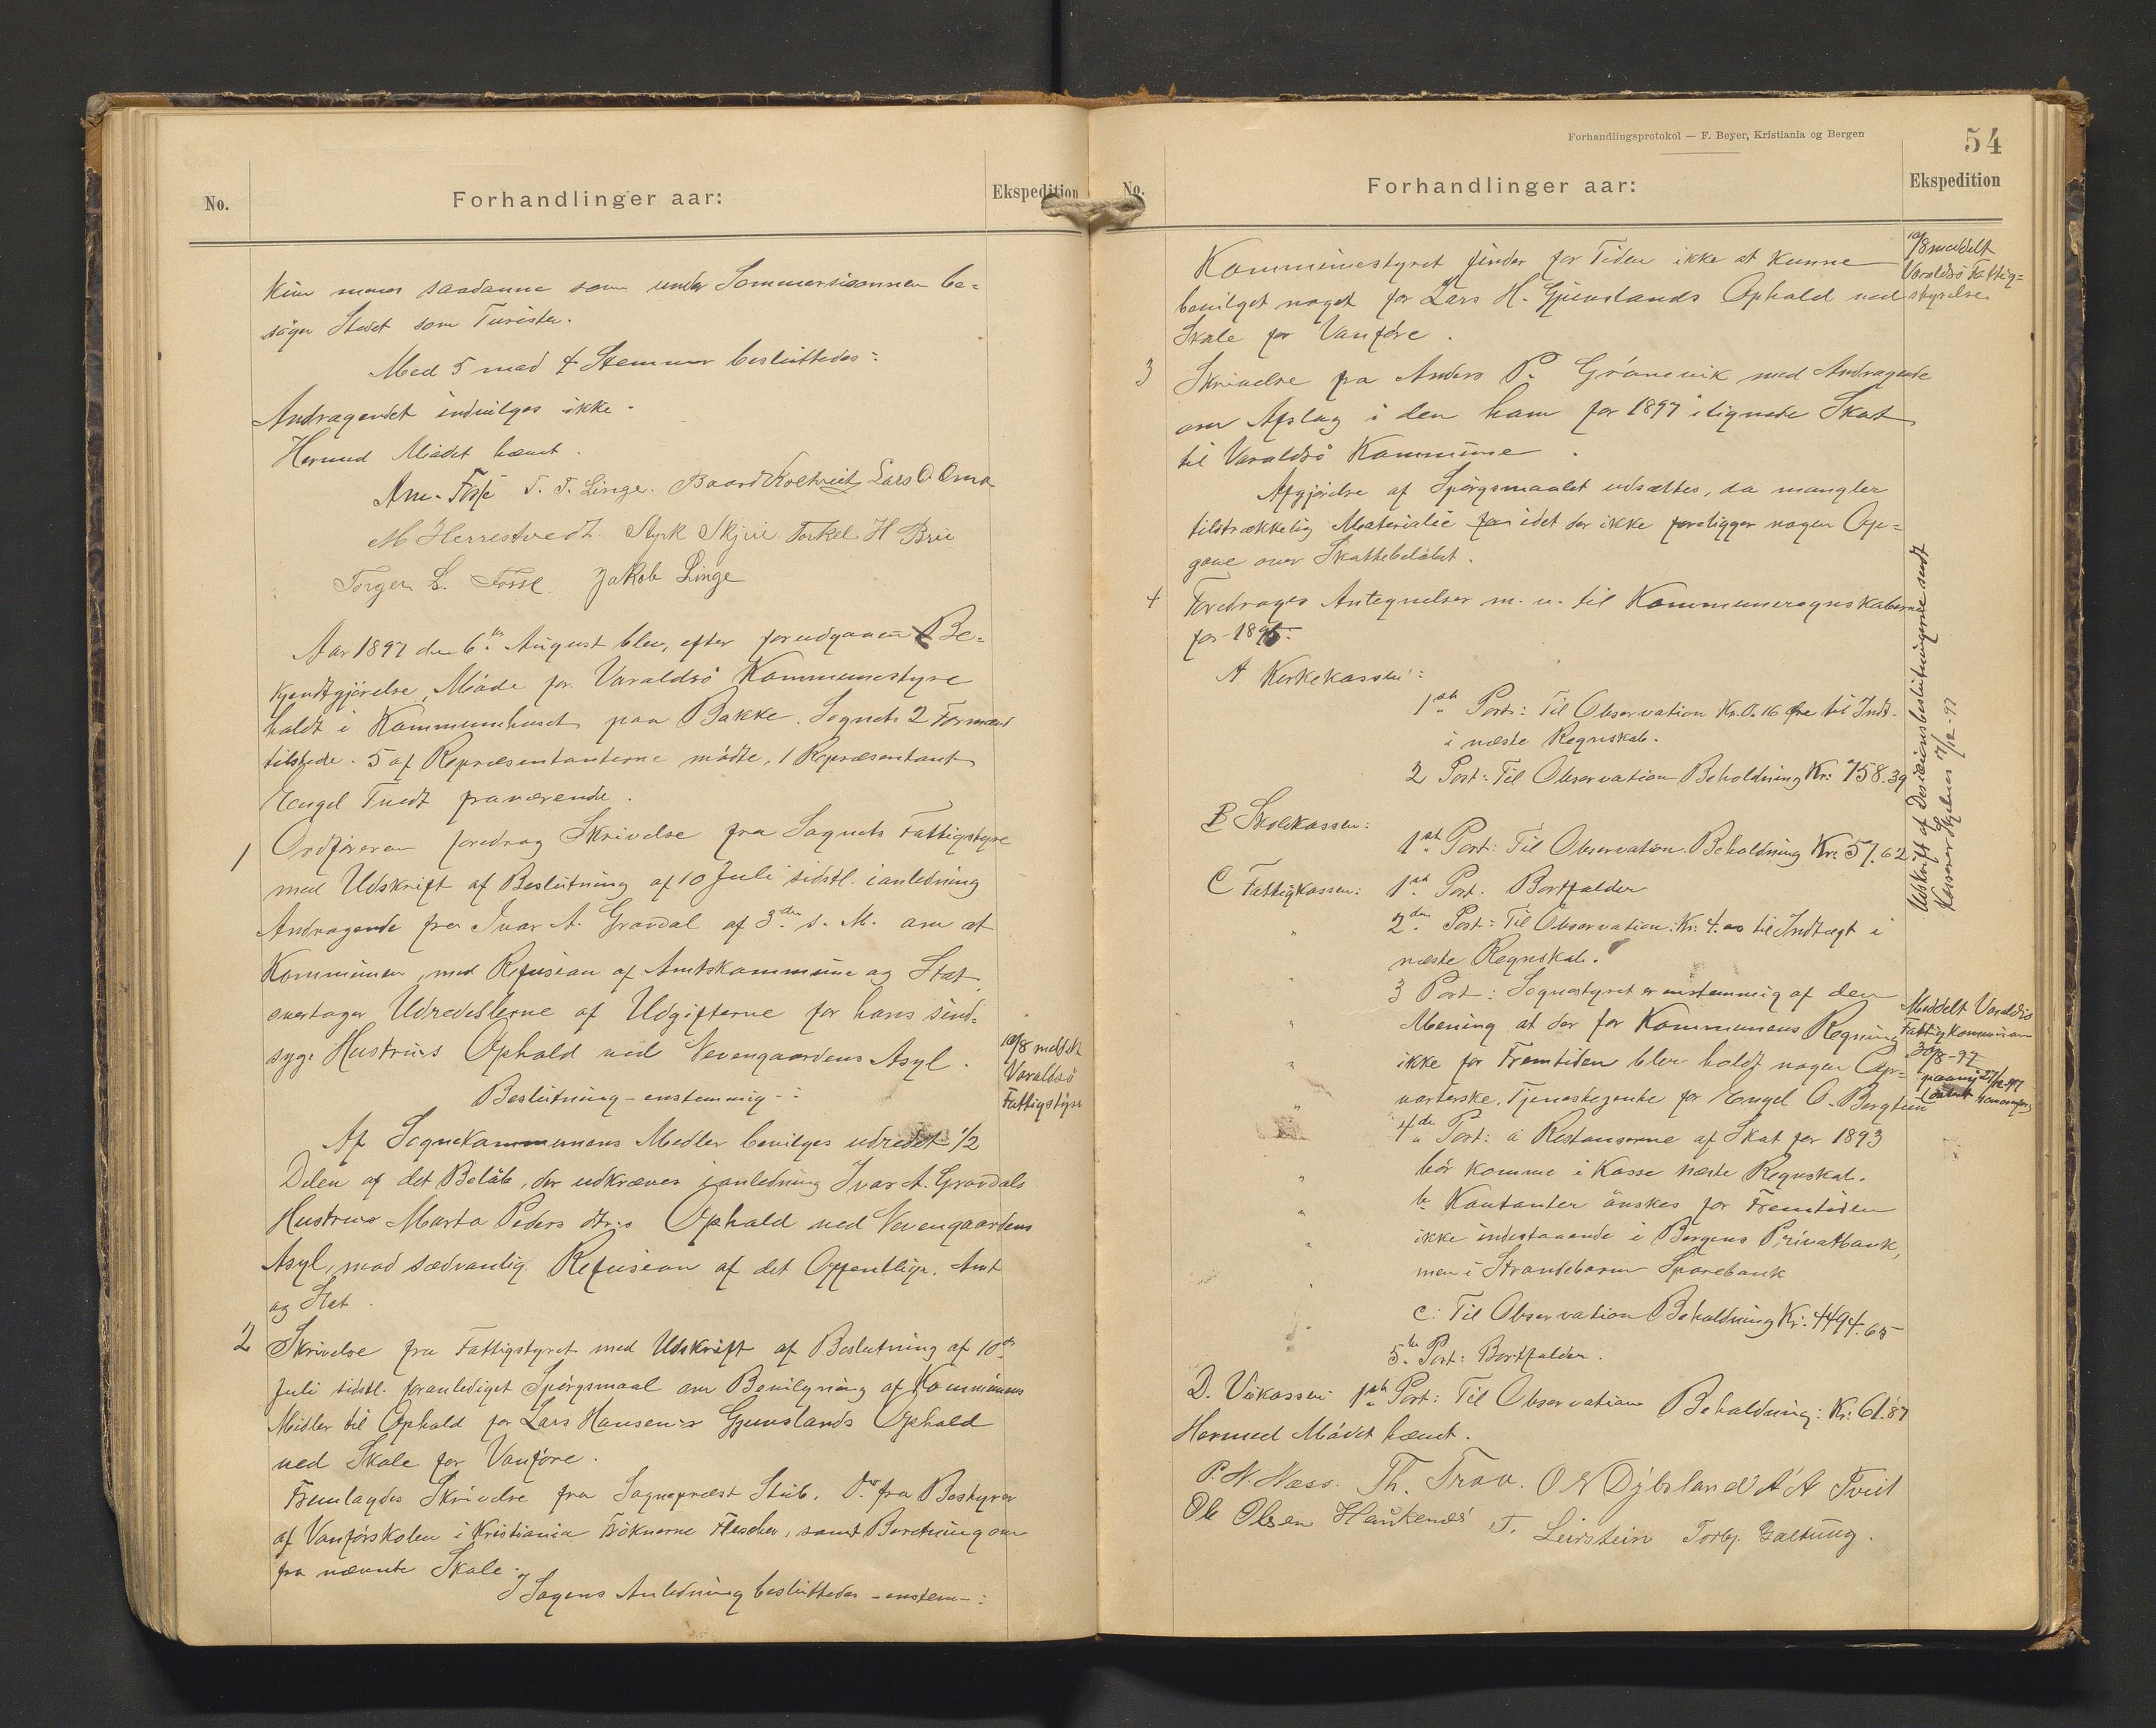 No.
Forhandlinger aar:
Ekspedition
kun menes saadanne som under Sommersæsonnen be=
søger Stedet som Turister.
Med 5 mod 4 Stemmer besluttedes:
Andragendet indvilges ikke.
Hermed Mødet hævet.
Arne Fosse T. T. Linge. Baard Koltveit Lars O Oma
M Herrestvedt. Styrk Skjeie. Torkel H Brie
Torger L. Fosse. Jakob Linge
Aar 1897 den 6te August blev, efter forudgaaen Be=
kjendtgjørelse, Møde for Varaldsø Kommunestyre
holdt i Kommunehuset paa Bakke. Sognets 2 Formænd
tilstede. 5 af Repræsentanterne mødte, 1 Repræsentant
Engel Tvedt fraværende.
1 Ordføreren foredrog Skrivelse fra Sognets Fattigstyre
med Udskrift af Beslutning af 10 Juli sidstl. ianledning
Andragende fra Ivar A. Gravdal af 3die s. M. om at
Kommunen, med Refusion af Amtskommune og Stat,
overtager Udredelserne af Udgifterne for hans sind=
syge Hustrues Ophold ved Nevengaardens Asyl.
10/8 meddelt
Varaldsø
Fattigstyre
Beslutning - enstemmig -:
Af Sognekommunens Medler bevilges udredet 1/2
Delen af det Beløb, der udkræves ianledning Ivar A. Gravdals
Hustrues Marta Peders dtr.s Ophold ved Nevengaardens
Asyl, mod sædvanlig Refusion af det Offentlige, Amt
og Stat.
2 Skrivelse fra Fattigstyret med Udskrift af Beslutning af 10de
Juli sidstl. foranlediget Spørgsmaal om Bevilgning af Kommunens
Midler til Ophold for Lars Hansen's Gjuvslands Ophold
ved Skole for Vanføre.
Fremlagdes Skrivelse fra Sogneprest Stub. Do fra Bestyrer
af Vanførskolen i Kristiania Frøknerne Flescher, samt Beretning om
fra nævnte Skole.
I Sagens Anledning besluttedes - enstem -:
Forhandlingsprotokol — F. Beyer, Kristiania og Bergen
54
No.
Forhandlinger aar:
Ekspedition
Kommunestyret finder for Tiden ikke at kunne
bevilget noget for Lars H. Gjuvslands Ophold ved
Skole for Vanføre.
10/8 meddelt
Varaldsø Fattig=
styrelse
3 Skrivelse fra Anders P. Grønevik med Andragende
om Afslag i den ham for 1897 ilignede Skat
til Varaldsø Kommune.
Afgjørelse af Spørgsmaalet udsættes, da mangler
tilstrækkelig Materialie for idet der ikke foreligger nogen Op=
gave over Skattebeløbet.
4 Foredrages Antegnelser m. v. til Kommuneregnskaberne
for 1895:
Udskrift af Desisionsbeslutningerne sendt
Kasserer 17/12-97
A Kirkekassen:
1ste Post: Til Observation Kr. 0.16 Øre til Indt.
i næste Regnskab.
2 Post: Til Observation Beholdning Kr: 758.39
B Skolekassen:
1ste Post: Til Observation. Beholdning Kr: 57.62
C Fattigkassen: 1ste Post. Bortfalder
" 2den Post: Til Observation: Kr: 4.00 til Indtægt i
næste Regnskab.
" 3 Post: Sognestyret er enstemmig af den
" Mening at der for Kommunens Regning
" ikke for Fremtiden blev holdt nogen Op=
" varterske, Tjenestejente for Engel O. Bergtun
Meddelt Varaldsø
Fattigkommision
30/8-97
4de Post: a Restanserne af Skat for 1893
" bør komme i Kasse næste Regnskab.
" b Kontanter ønskes for Fremtiden
" ikke indestaaende i Bergens Privatbank,
men i Strandebarm Sparebank
c: Til Observation Beholdning Kr: 4494.65
5te Post: Bortfalder.
D. Veikassen 1ste Post: Til Observation Beholdning: Kr: 61.87
Hermed Mødet hævet.
P. N. Næss. Th. Trov. O N Djbsland A A Tveit
Ole Olsen Haukenæs T. Leirstein Torbj. Galtung.